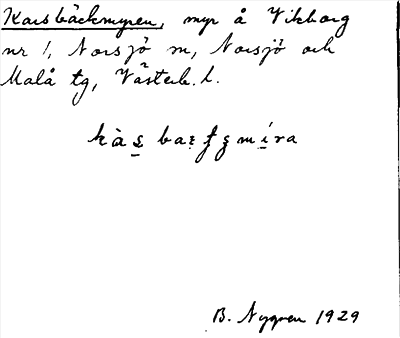 Korsbäckmyren, myr å Vikborg
nr 1, Norsjö sn, Norsjö och
Malå tg, Västerb. l.
B. Nygren 1929